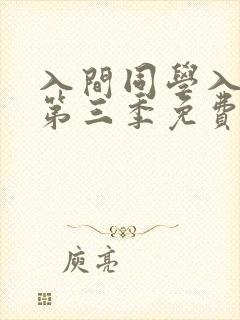 入間同學入
第三季免費
庾亮